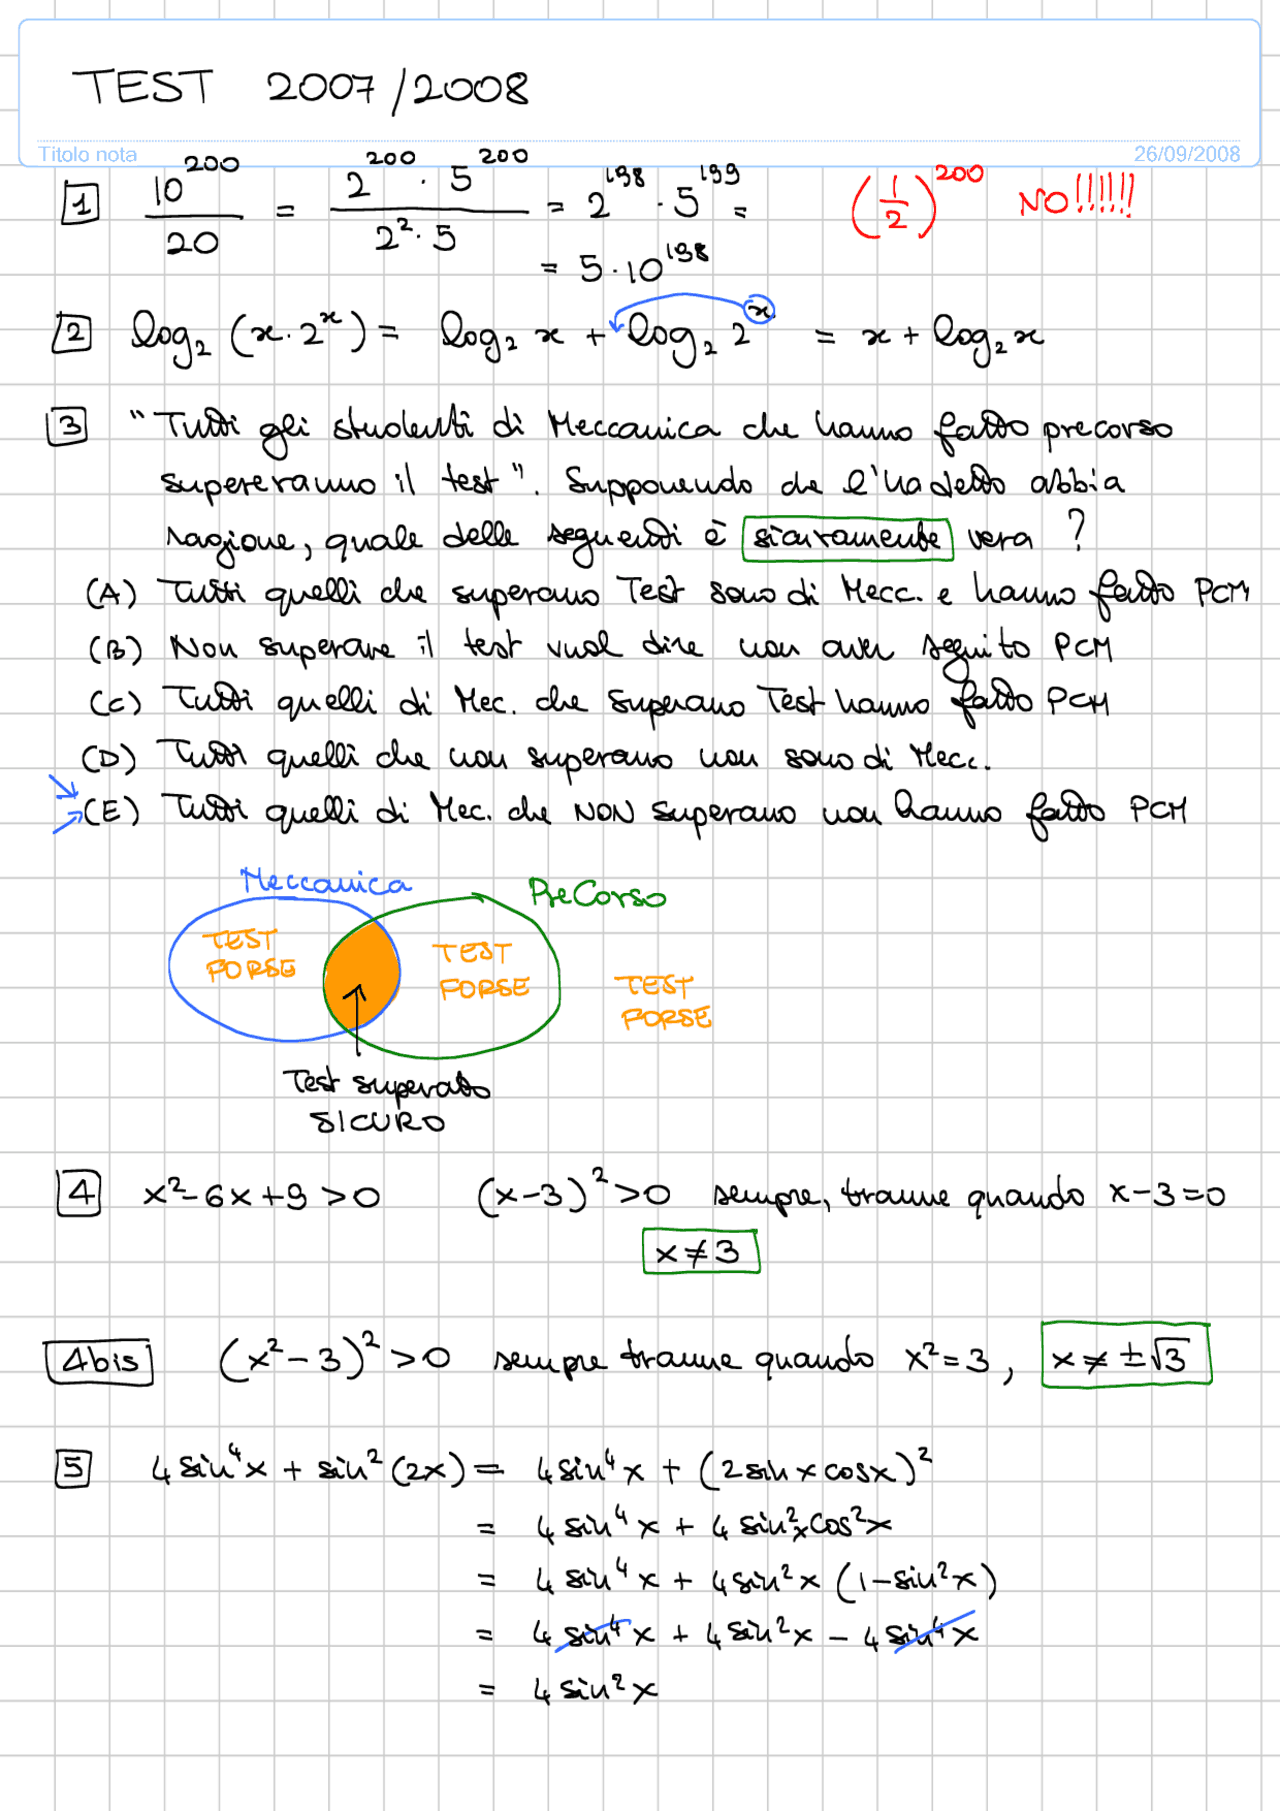 TEST 2007/2008
Titolo nota 26/09/2008
1 10^200 / 20 = 2^200 · 5^200 / 2^2 · 5 = 2^198 · 5^199 = (1/2)^200 NO!!!!!!
= 5 · 10^198
2 log₂ (x · 2^x) = log₂ x + log₂ 2^x = x + log₂ x
3 "Tutti gli studenti di Meccanica che hanno fatto precorso
supereranno il test". Supponendo che l'ha detto abbia
ragione, quale delle seguenti è sicuramente vera ?
(A) Tutti quelli che superano Test sono di Mecc. e hanno fatto PCM
(B) Non superare il test vuol dire non aver seguito PCM
(C) Tutti quelli di Mec. che superano Test hanno fatto PCM
(D) Tutti quelli che non superano non sono di Mecc.
(E) Tutti quelli di Mec. che NON superano non hanno fatto PCM
Meccanica PreCorso
TEST FORSE
TEST FORSE
TEST FORSE
Test superato
SICURO
4 x² - 6x + 9 > 0 (x-3)² > 0 sempre, tranne quando x-3=0
x ≠ 3
4bis (x² - 3)² > 0 sempre tranne quando x² = 3, x ≠ ±√3
5 4 sin⁴x + sin² (2x) = 4 sin⁴x + (2 sin x cos x)²
= 4 sin⁴x + 4 sin²x cos²x
= 4 sin⁴x + 4 sin²x (1 - sin²x)
= 4 sin⁴x + 4 sin²x - 4 sin⁴x
= 4 sin²x